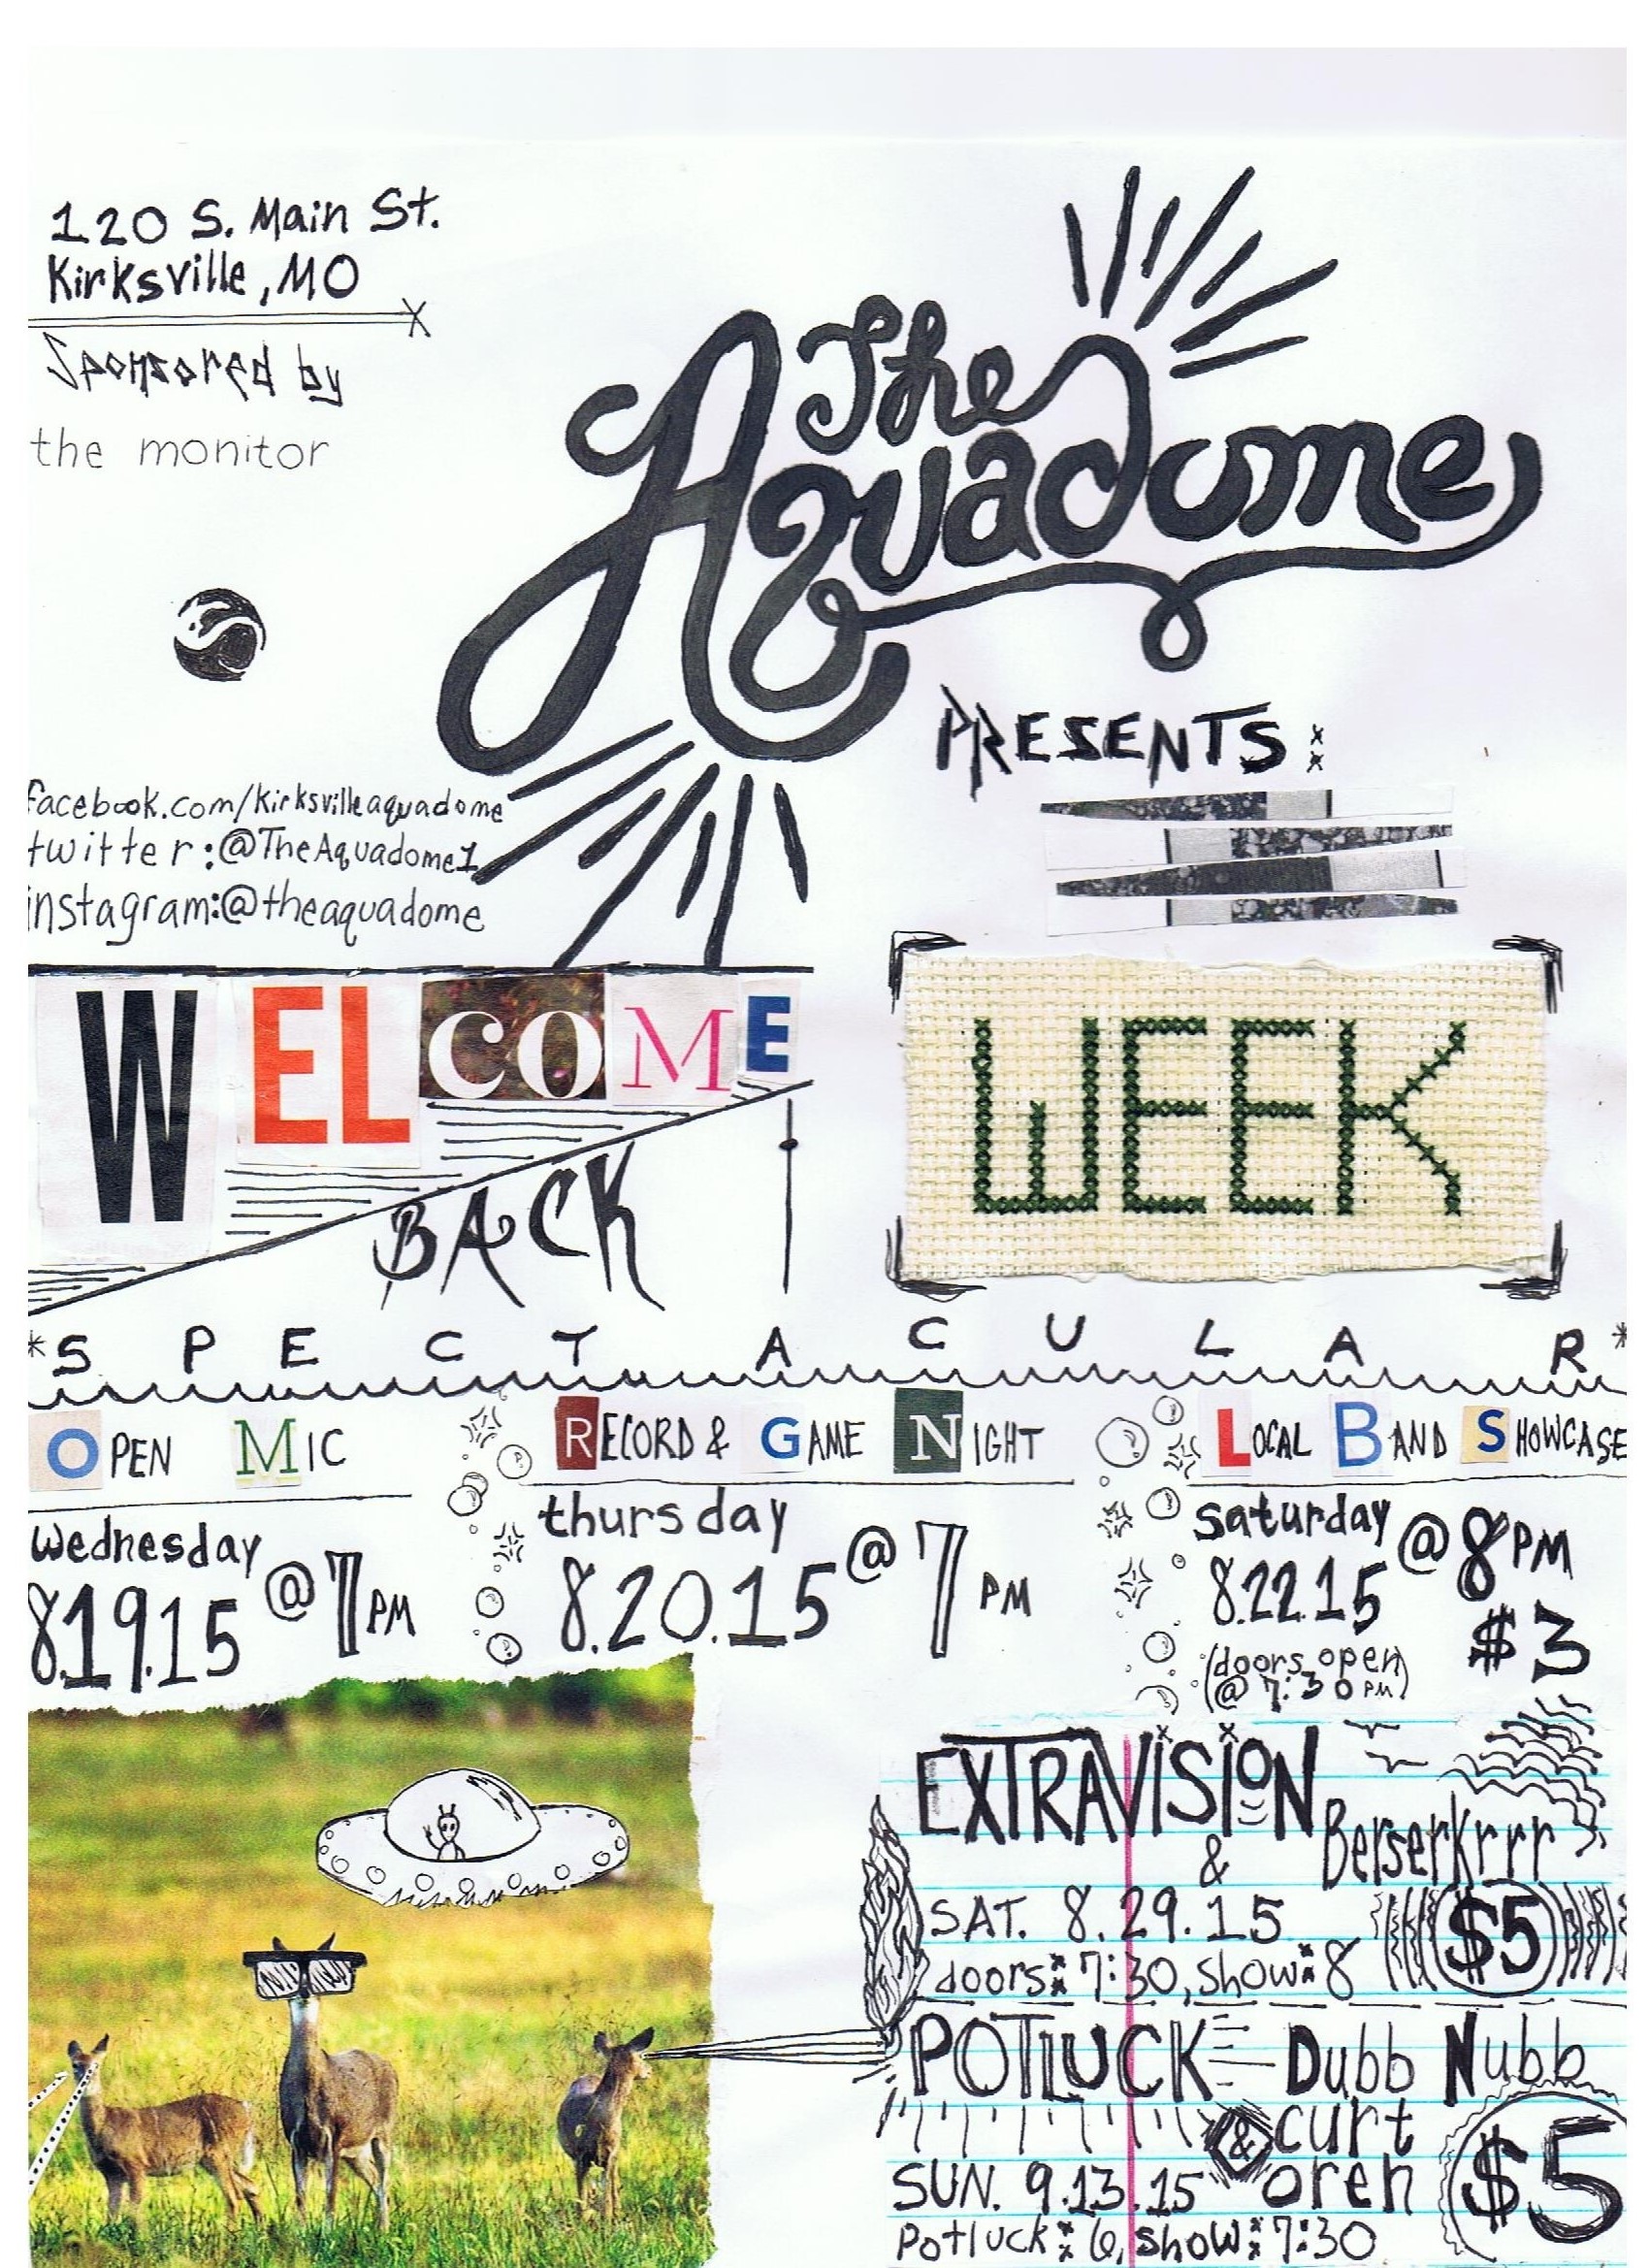 120 S. Main St.
Kirksville, MO
Sponsored by
the monitor
The
Aquadome
PRESENTS:
facebook.com/kirksvilleaquadome
twitter:@TheAquadome1
instagram:@theaquadome
WELCOME
BACK
WEEK
*SPECTACULAR*
OPEN MIC
wednesday
8.19.15 @ 7PM
RECORD & GAME NIGHT
thursday
8.20.15 @ 7 PM
LOCAL BAND SHOWCASE
saturday @ 8PM
8.22.15
$3
(doors open
@ 7:30 PM)
EXTRAVISION
& Berserkrrr
SAT. 8.29.15
$5
doors: 7:30, show: 8
POTLUCK Dubb Nubb
& curt
oren
$5
SUN. 9.13.15
Potluck: 6, show: 7:30